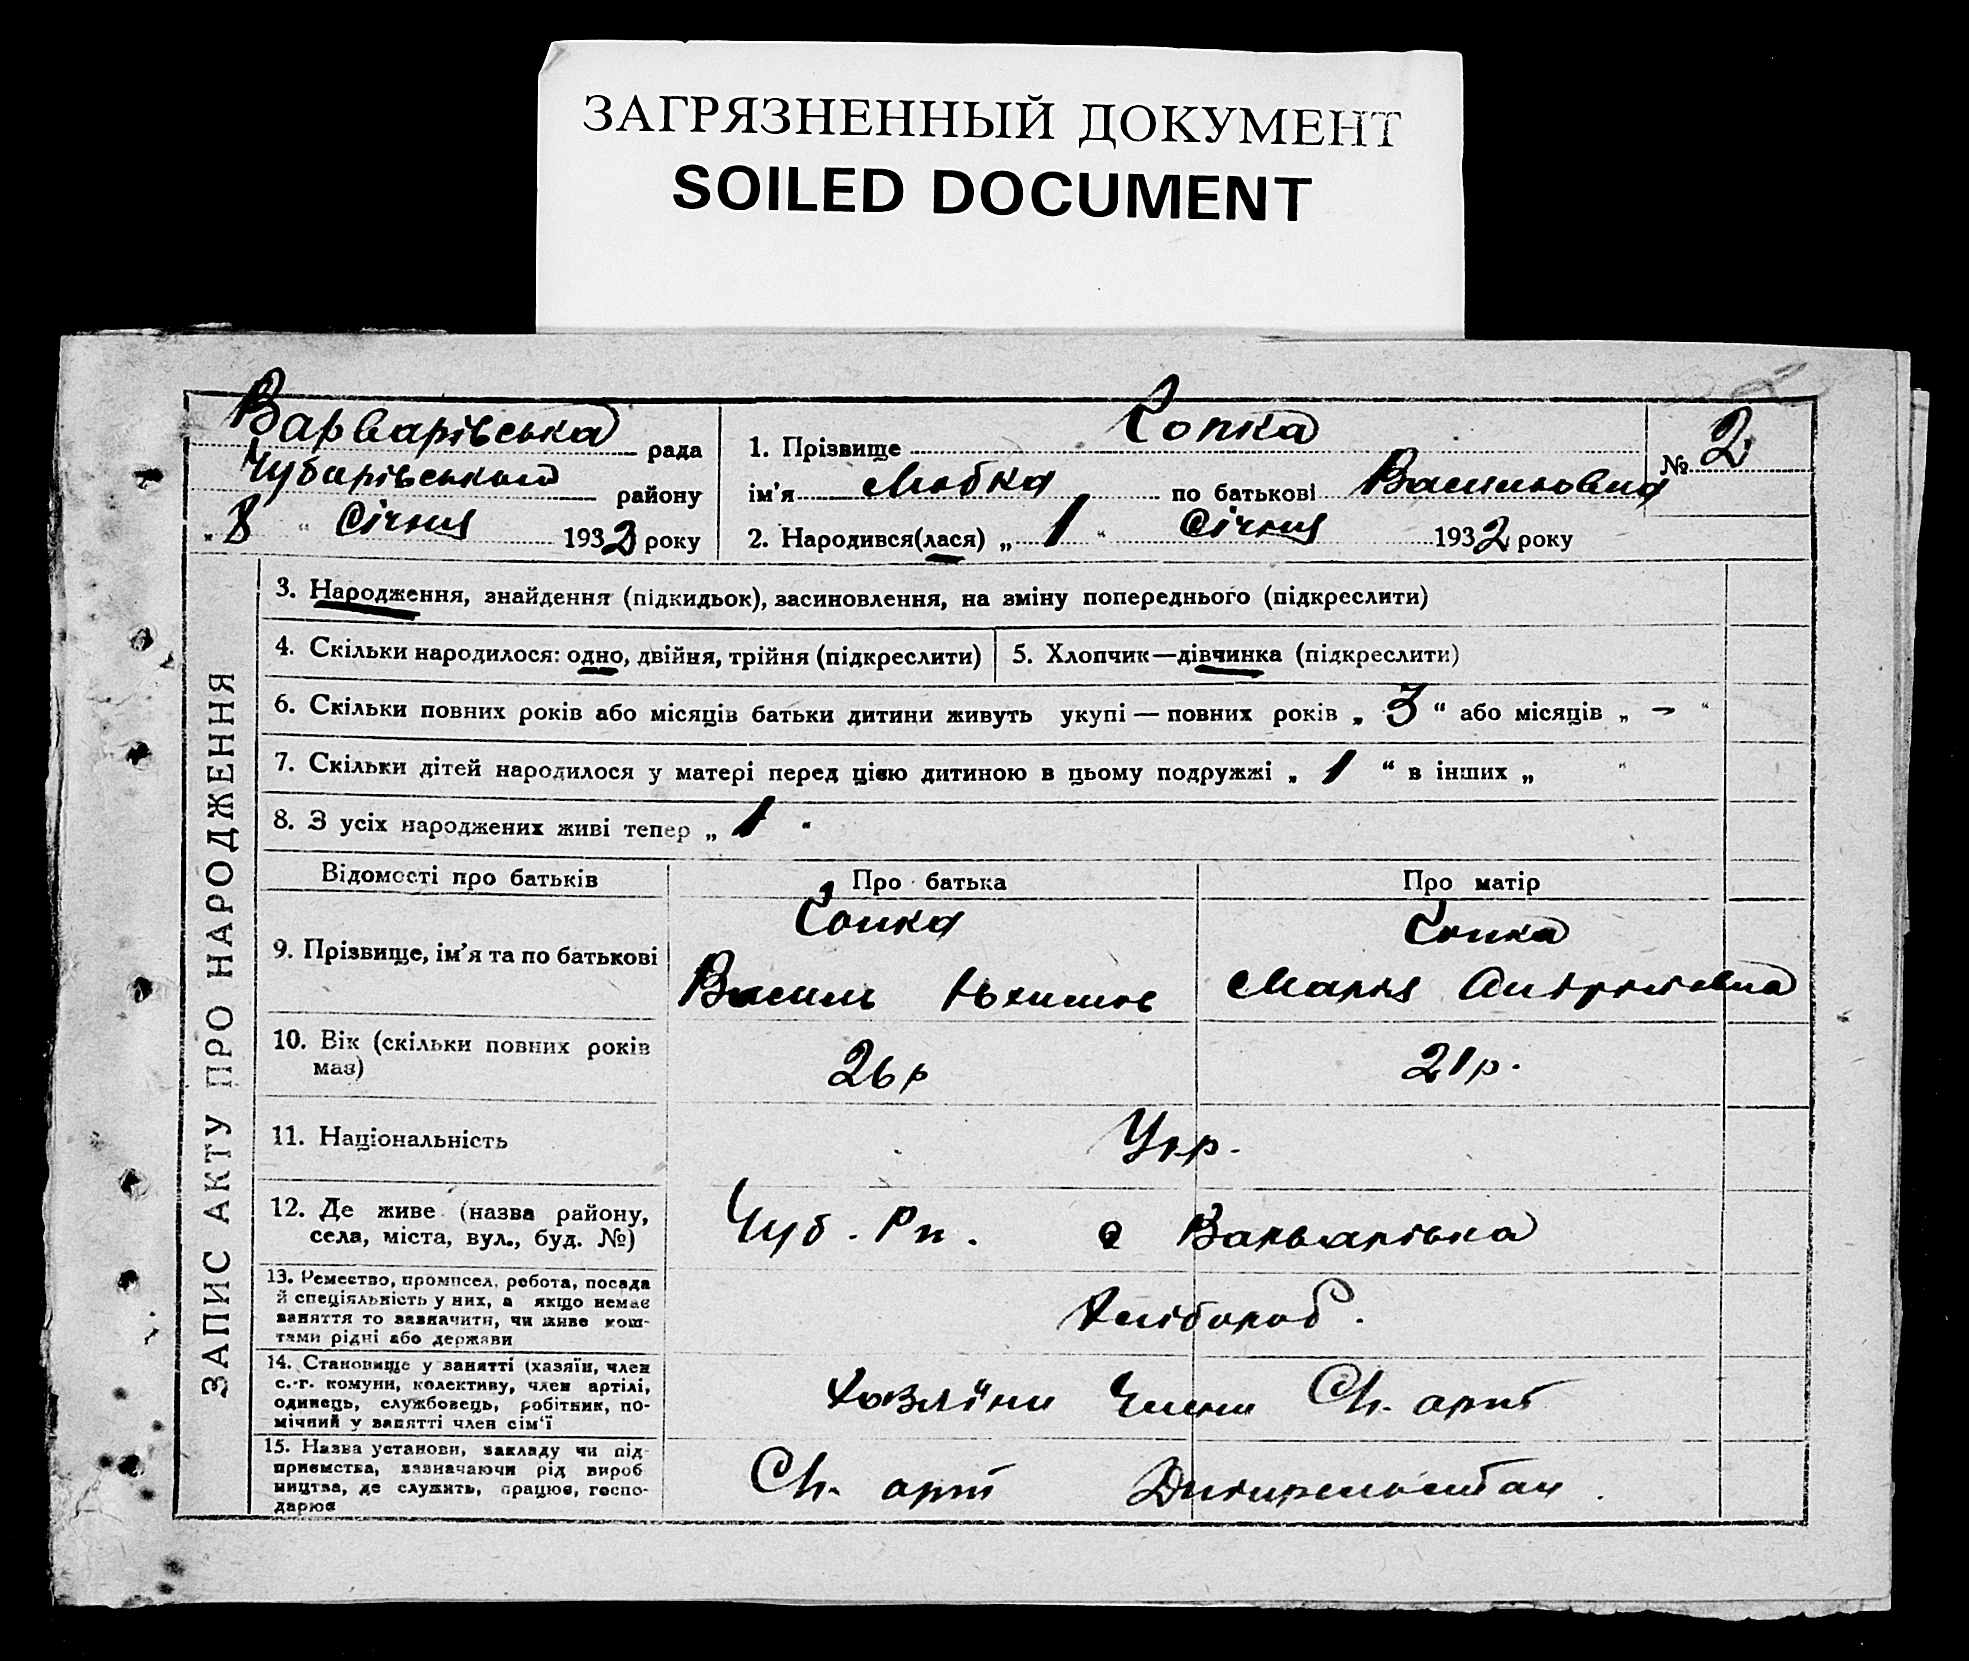 ЗАГРЯЗНЕННЫЙ ДОКУМЕНТ
SOILED DOCUMENT
Варварівська рада
Чубарівського району
„ 8 “ Січня 1932 року
1. Прізвище Сопка
ім'я Любка по батькові Василювна
№ 2
2. Народився(лася) „ 1 “ Січня 1932 року
ЗАПИС АКТУ ПРО НАРОДЖЕННЯ
3. Народження, знайдення (підкидьок), засиновлення, на зміну попереднього (підкреслити)
4. Скільки народилося: одно, двійня, трійня (підкреслити)
5. Хлопчик—дівчинка (підкреслити)
6. Скільки повних років або місяців батьки дитини живуть укупі — повних років „ 3 “ або місяців „ - “
7. Скільки дітей народилося у матері перед цією дитиною в цьому подружжі „ 1 “ в інших „ “
8. З усіх народжених живі тепер „ 1 “
Відомості про батьків
Про батька
Про матір
9. Прізвище, ім'я та по батькові
Сопка
Василь Юхимов
Сопка
Марія
10. Вік (скільки повних років
має)
26 р
21 р.
11. Національність
Укр.
12. Де живе (назва району,
села, міста, вул., буд. №)
Чуб. Рн. с Варварівка
13. Ремество, промисел, робота, посада
й спеціяльність у них, а якщо немає
заняття то зазначити, чи живе кош-
тами рідні або держави
Хлібороб.
14. Становище у занятті (хазяїн, член
с.-г. комуни, колективу, член артілі,
одинець, службовець, робітник, по-
мічний у занятті член сім'ї
Хозяїни Члени Сг. арт
15. Назва установи, закладу чи під-
приємства, зазначаючи рід вироб
ництва, де служить, працює, госпо-
дарює
Сг. арт